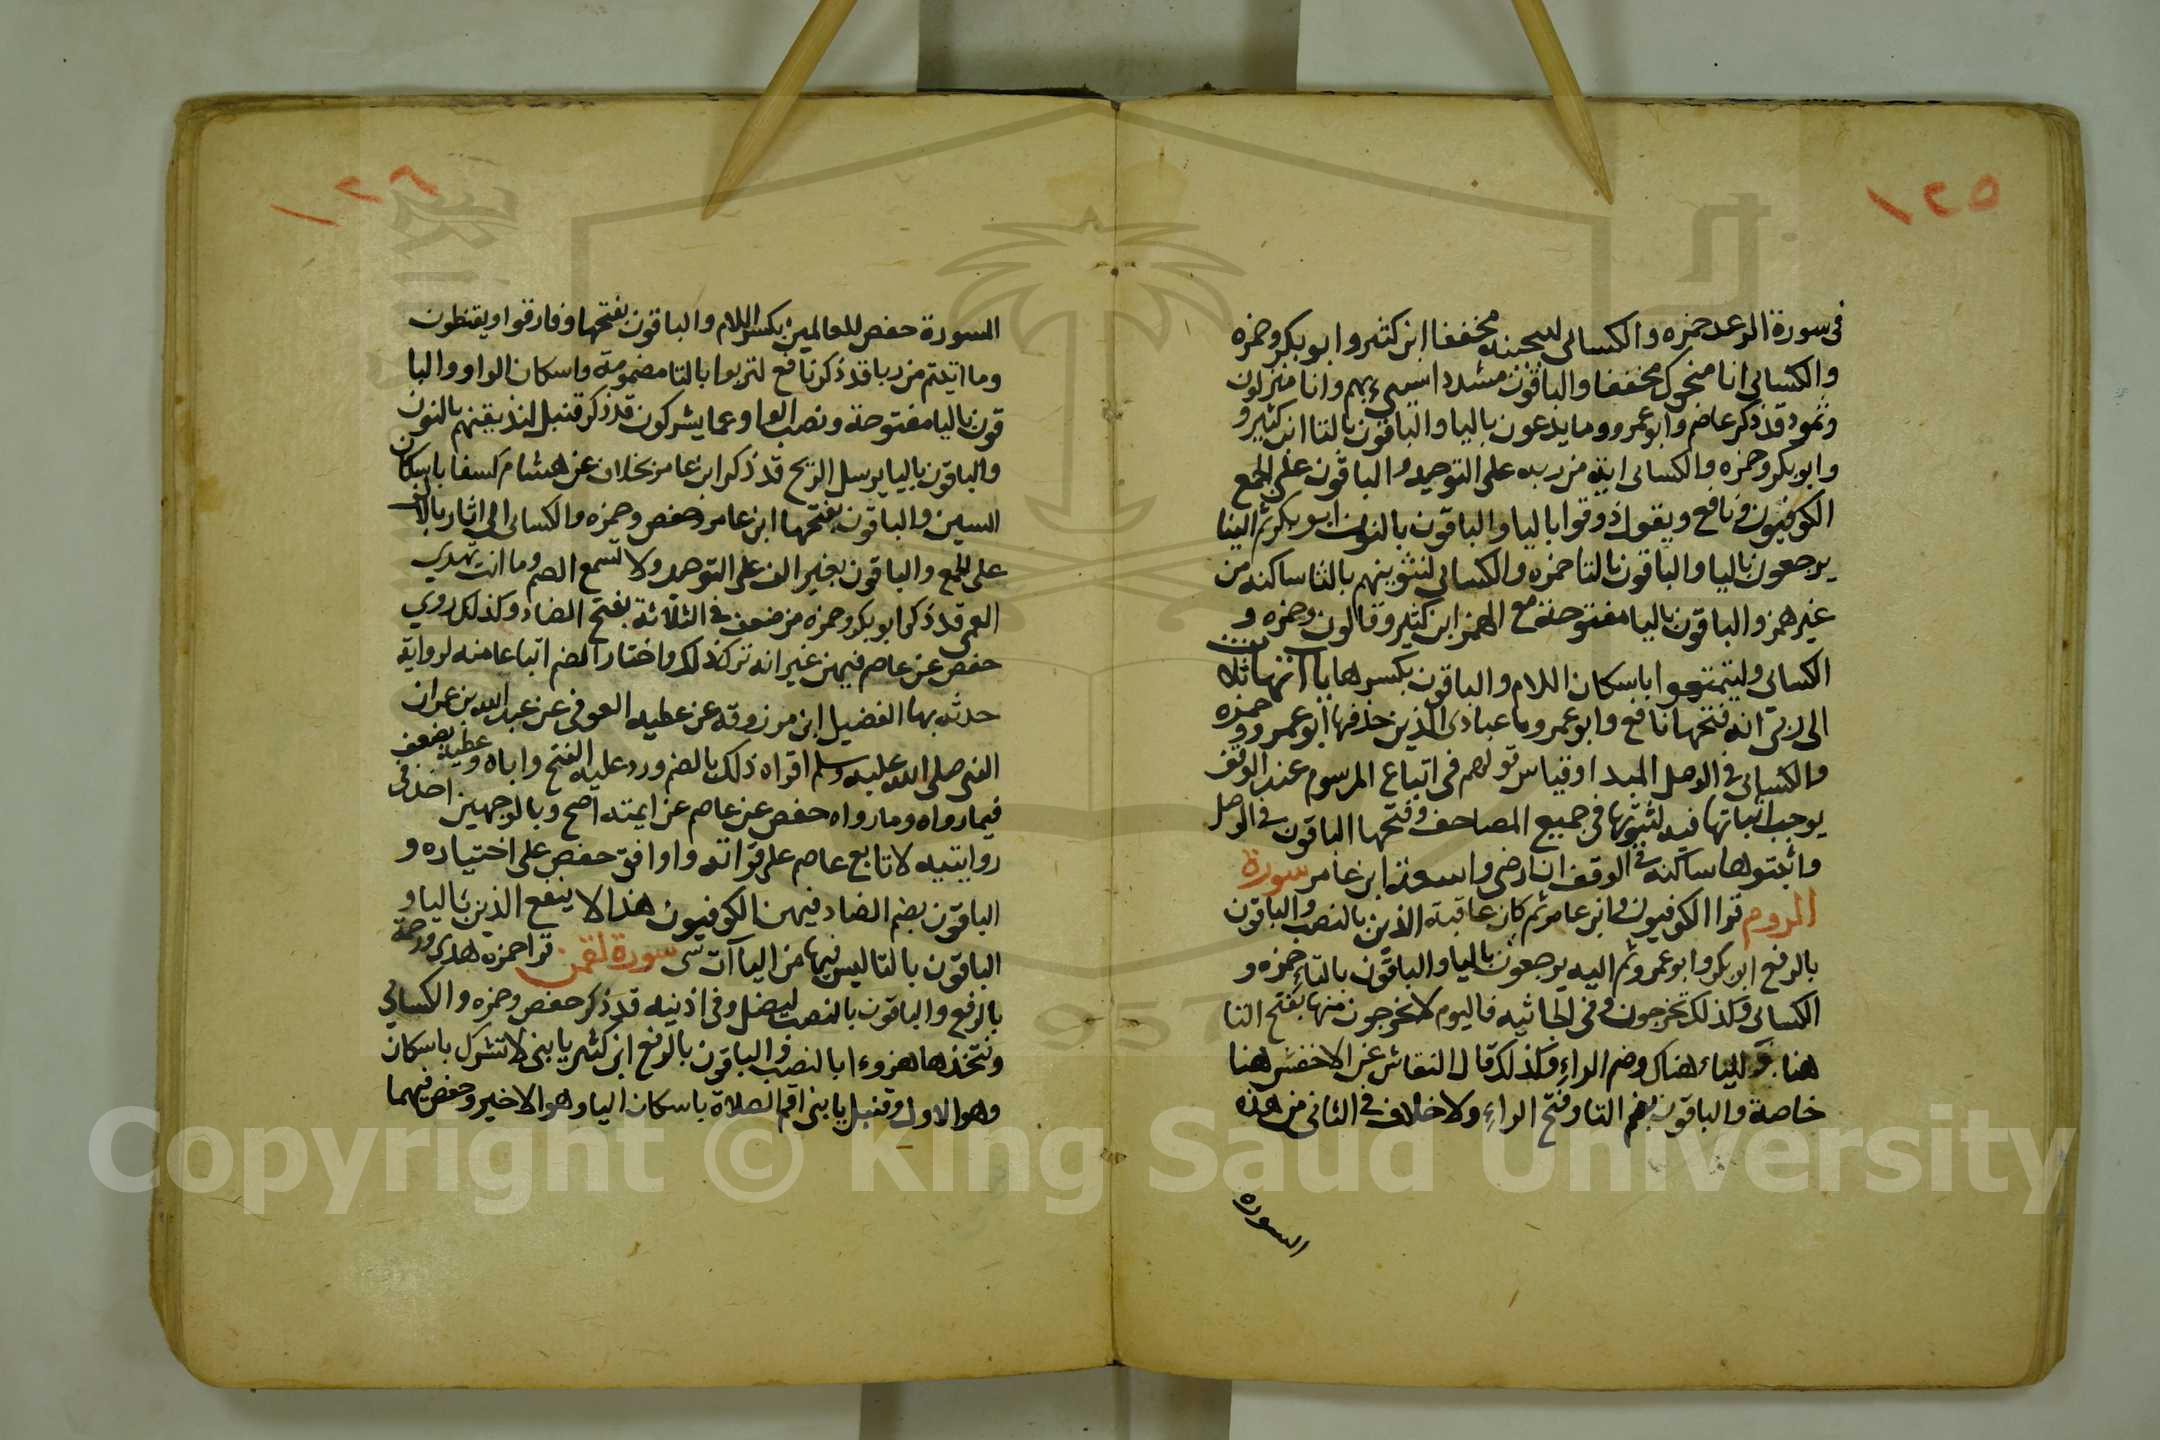 ١٢٥
فى سورة الرعد حمزه والكسائى لننجينه مخففا ابن كثير وابو بكر وحمزه
والكسائى انا منجوك مخففا والباقون مشددا سيىء بهم وانا منزلون
وثمود قد ذكر عاصم وابو عمرو وما يدعون باليا والباقون بالتا ابن كثير و
وابو بكر وحمزه والكسائى ايته من ربه على التوحيد والباقون على الجمع
الكوفيون ونافع ويقول ذوقوا باليا والباقون بالنون ابو بكر ثم الينا
يرجعون باليا والباقون بالتا حمزه والكسائى لنثوينهم بالثا ساكنه من
غير همز والباقون باليا مفتوحة مع الهمز ابن كثير وقالون وحمزه و
الكسائى وليتمتعوا باسكان اللام والباقون بكسرها يااتها ثلاث
الى ربى انه فتحها نافع وابو عمرو ويا عبادى الذين حذفها ابو عمرو وحمزه
والكسائى فى الوصل
اوقياس قولهم فى اتباع المرسوم عند الوقف
يوجب اثباتها فيه لثبوتها فى جميع المصاحف وفتحها الباقون فى الوصل
واثبتوها ساكنة فى الوقف ان ارضى واسعة ابن عامر سورة
الروم قرا الكوفيون وابن عامر ثم كان عاقبة الذين بالنصب والباقون
بالرفع ابو بكر وابو عمرو ثم اليه يرجعون باليا والباقون بالتاء حمزه و
الكسائى وكذلك تخرجون وفى الجاثيه فاليوم لا يخرجون منها بفتح التا
هنا والياء هناك وضم الراء وكذلك قال النقاش عن الاخفش هنا
خاصة والباقون بضم التا وفتح الراء ولا خلاف فى الثانى من هذه
السوره
١٢٦
السورة حفص للعالمين بكسر اللام والباقون بفتحها وفارقوا ويقنطون
وما اتيتم من ربا قد ذكر نافع لتربوا بالتا مضمومة واسكان الواو والبا
قون باليا مفتوحة ونصب الواو وعما يشركون قد ذكر قنبل لنذيقنهم بالنون
والباقون باليا يرسل الريح قد ذكر ابن عامر بخلاف عن هشام كسفا باسكان
السين والباقون بفتحها ابن عامر وحفص وحمزه والكسائى الى اثار بالالف
على الجمع والباقون بغير الف على التوحيد ولا تسمع الصم وما انت تهدى
العمى قد ذكر ابو بكر وحمزه من ضعف فى الثلاثة بفتح الضاد وكذلك روى
حفص عن عاصم فيهن غير انه ترك ذلك واختار الضم اتباعا منه لرواية
حدثه بها الفضيل ابن مرزوق عن عطيه العوفى عن عبد الله بن عمر ان
النبى صلى الله عليه وسلم اقراه ذلك بالضم ورد عليه الفتح واباه وعطيه يضعف
فيما رواه وما رواه حفص عن عاصم عن ايمته اصح وبالوجهين اخذ فى
روايتيه لاتابع عاصم على قراته واوافق حفص على اختياره و
الباقون بضم الضاد فيهن الكوفيون هنا لا ينفع الذين باليا و
الباقون بالتا ليس فيها من الياآت شى سورة لقمن قرا حمزه هدى ورحمة
بالرفع والباقون بالنصب ليضل وفى اذنيه قد ذكر حفص وحمزه والكسائى
ونتخذها هزوءا بالنصب والباقون بالرفع ابن كثير يا بنى لا تشرك باسكان
وهو الاول وقنبل يا بنى اقم الصلاة باسكان اليا وهو الاخير وحفص فيهما
Copyright © King Saud University
1957